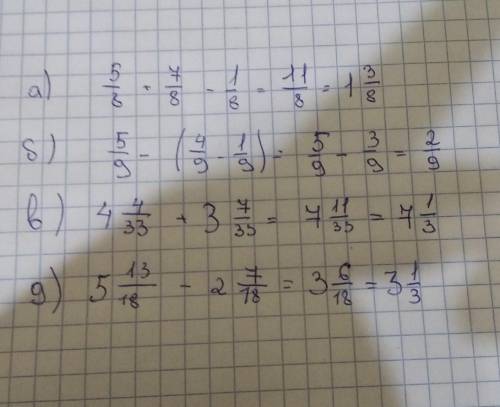 а) 5/8 + 7/8 - 1/8 = 11/8 = 1 3/8
б) 5/9 - (4/9 - 1/9) = 5/9 - 3/9 = 2/9
в) 4 4/33 + 3 7/33 = 7 11/33 = 7 1/3
д) 5 13/18 - 2 7/18 = 3 6/18 = 3 1/3